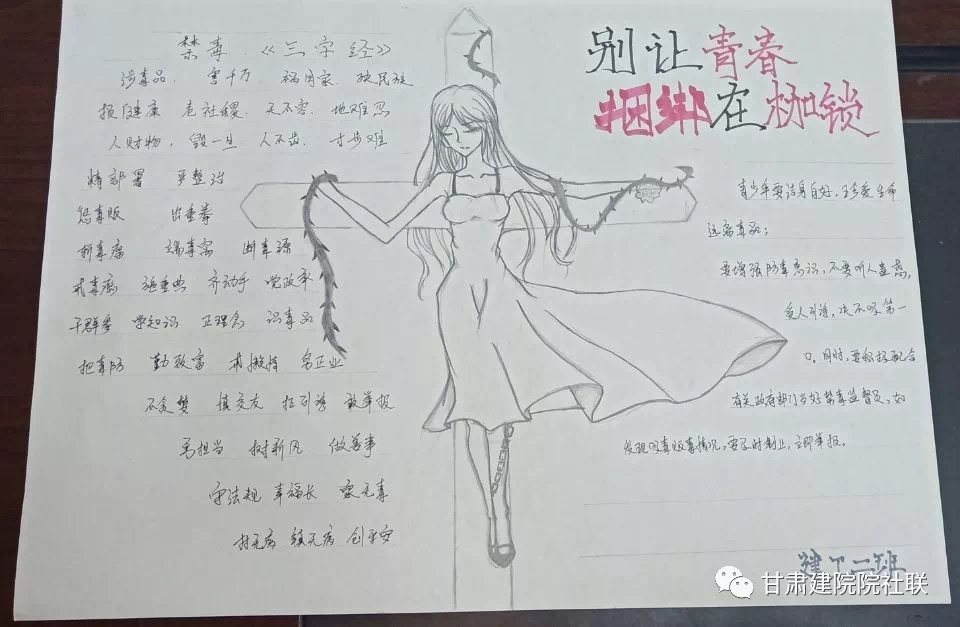 禁毒《三字经》
涉毒品 害千万 祸国家 殃民族
损健康 危社稷 天不容 地难忍
人财物，毁一旦 人不齿 寸步难
精部署 严整治
惩毒贩 出重拳
斩毒瘤 端毒窝 断毒源
戒毒瘾 施重典 齐动手 党政军
干群参 学知识 正理念 识毒品
把毒防 勤致富 戒懒惰 务正业
不贪婪 慎交友 拒引诱 敢举报
勇担当 树新风 做善事
守法规 幸福长 家无毒
村无病 镇无病 创平安
别让青春
捆绑在枷锁
青少年要洁身自好，珍爱生命
远离毒品；
要增强防毒意识，不要听人蛊惑，
受人引诱，决不吸第一
口。同时，要积极配合
有关政府部门当好禁毒监督员，如
发现吸毒贩毒情况，要及时制止，立即举报。
建工二班
甘肃建院院社联